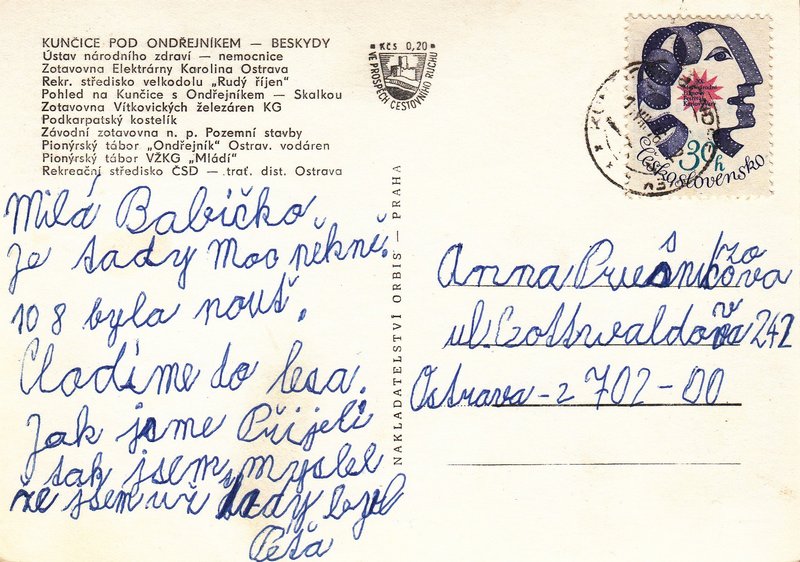 KUNČICE POD ONDŘEJNÍKEM — BESKYDY
Ústav národního zdraví — nemocnice
Zotavovna Elektrárny Karolina Ostrava
Rekr. středisko velkodolu „Rudý říjen"
Pohled na Kunčice s Ondřejníkem — Skalkou
Zotavovna Vítkovických železáren KG
Podkarpatský kostelík
Závodní zotavovna n. p. Pozemní stavby
Pionýrský tábor „Ondřejník" Ostrav. vodáren
Pionýrský tábor VŽKG „Mládí"
Rekreační středisko ČSD — trať. dist. Ostrava
Kčs 0,20
VE PROSPĚCH CESTOVNÍHO RUCHU
30h
Československo
Milá Babičko
je tady moc pěkně.
10 8 byla nouť.
Chodíme do lesa.
Jak jsme Přijeli
tak jsem myslel
že jsem uš tady byl
Péťa
NAKLADATELSTVÍ ORBIS — PRAHA
Anna
ul. Gottwaldova 242
Ostrava-2 702-00